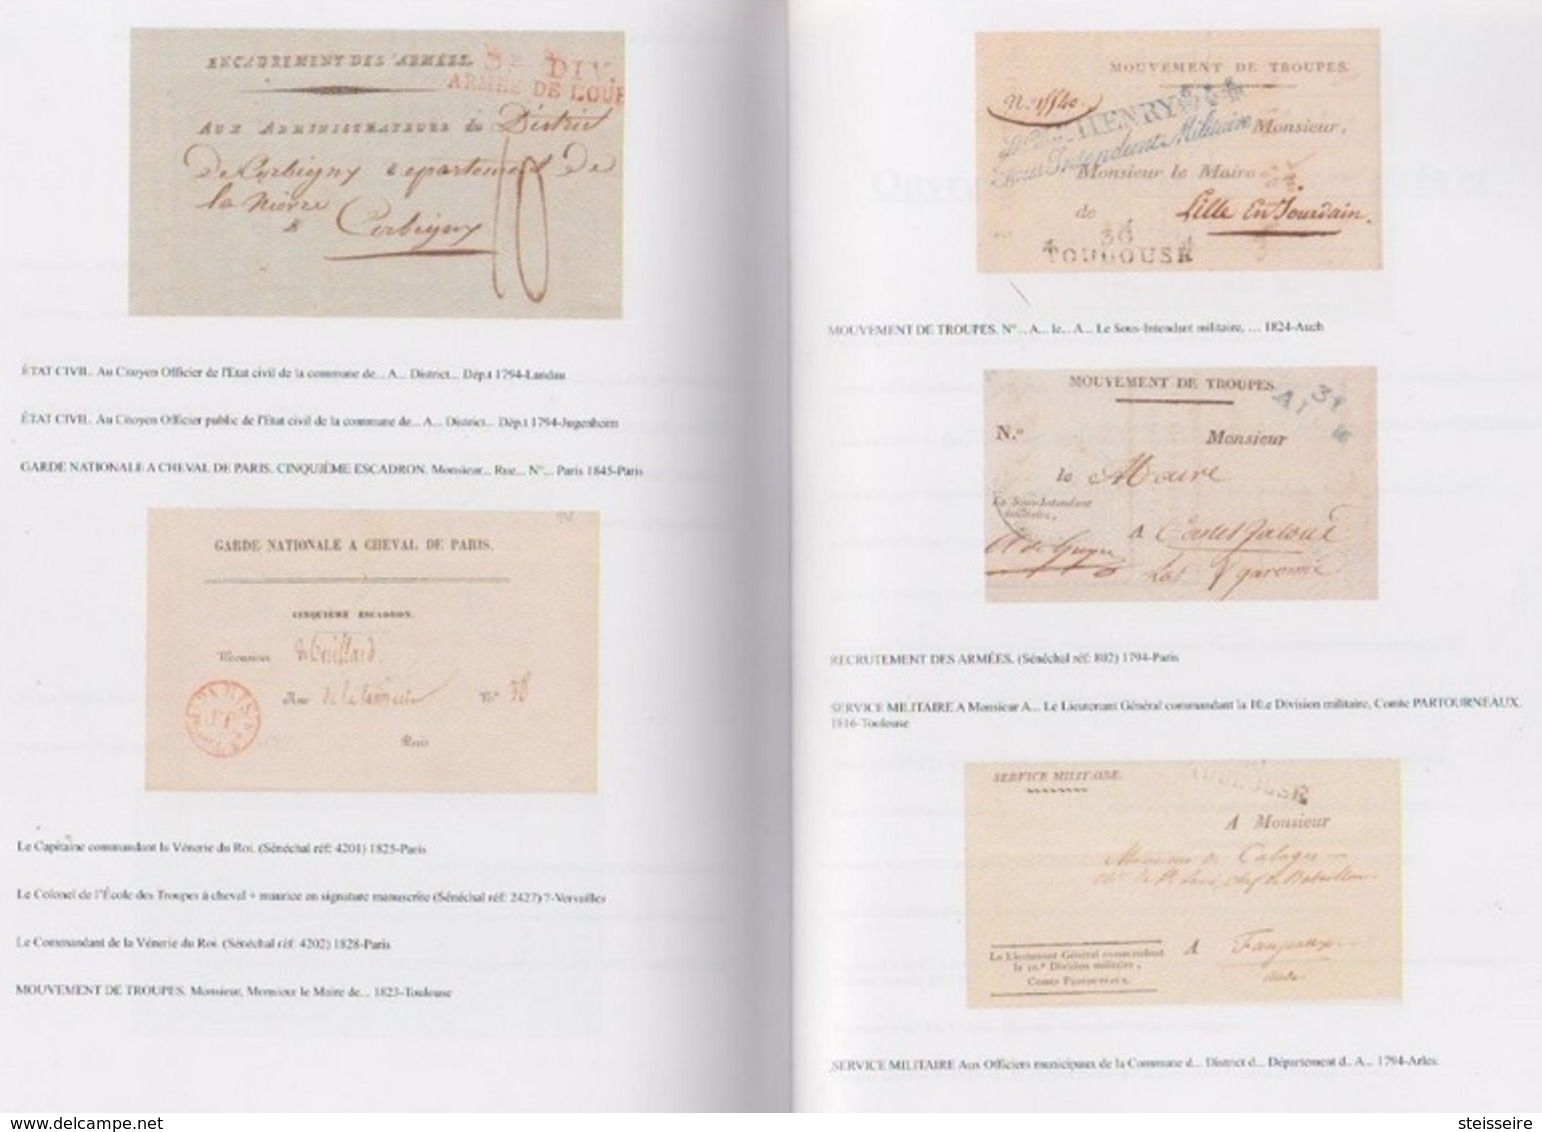 ENCADREMENT DES ARMÉES.
DIV.
ARMÉE DE L'OUE
AUX ADMINISTRATEURS du District
De Corbigny departement De
la Nievre
à Corbigny
10
ÉTAT CIVIL. Au Citoyen Officier de l'Etat civil de la commune de... A... District... Dép.t 1794-Landau
ÉTAT CIVIL. Au Citoyen Officier public de l'Etat civil de la commune de... A... District... Dép.t 1794-Jugenheim
GARDE NATIONALE A CHEVAL DE PARIS. CINQUIÈME ESCADRON. Monsieur... Rue... N°... Paris 1845-Paris
GARDE NATIONALE A CHEVAL DE PARIS.
CINQUIÈME ESCADRON.
Monsieur
Rue N° 38
PARIS
Paris
Le Capitaine commandant la Vénerie du Roi. (Sénéchal réf: 4201) 1825-Paris
Le Colonel de l'École des Troupes à cheval + maurice en signature manuscrite (Sénéchal réf: 2427) ?-Versailles
Le Commandant de la Vénerie du Roi. (Sénéchal réf: 4202) 1828-Paris
MOUVEMENT DE TROUPES. Monsieur, Monsieur le Maire de... 1823-Toulouse
MOUVEMENT DE TROUPES.
HENRY
Sous Intendant Militaire
Monsieur,
Monsieur le Maire
de Lille En Jourdain.
30
TOULOUSE
MOUVEMENT DE TROUPES. N°... A... le... A... Le Sous-Intendant militaire, ... 1824-Auch
MOUVEMENT DE TROUPES.
N.° Monsieur
le Maire
Le Sous-Intendant
militaire,
A Casteljaloux
Lot garonne
RECRUTEMENT DES ARMÉES. (Sénéchal réf: 802) 1794-Paris
SERVICE MILITAIRE A Monsieur A... Le Lieutenant Général commandant la 10.e Division militaire, Comte PARTOURNEAUX.
1816-Toulouse
SERVICE MILITAIRE.
A Monsieur
Monsieur de Calages
A Fanjeaux
aude
Le Lieutenant Général commandant
la 10.e Division militaire,
Comte PARTOUNEAUX.
SERVICE MILITAIRE Aux Officiers municipaux de la Commune d... District d... Département d.. A... 1794-Arles.
www.delcampe.net
steisseire